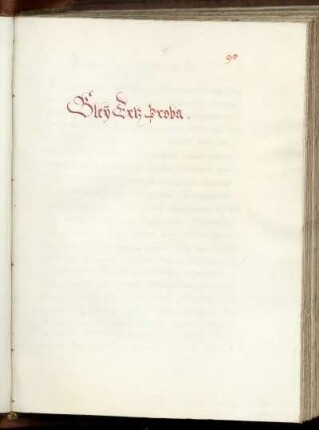 90
Bleÿ Ertz Proba.